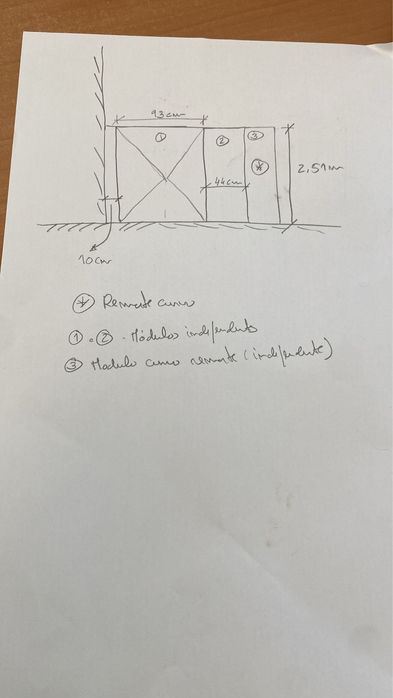 93cm
① ② ③
44cm
2,51m
10cm
* Remate curvo
① · ② · Módulos independents
③ Modulo curvo remate (independente)